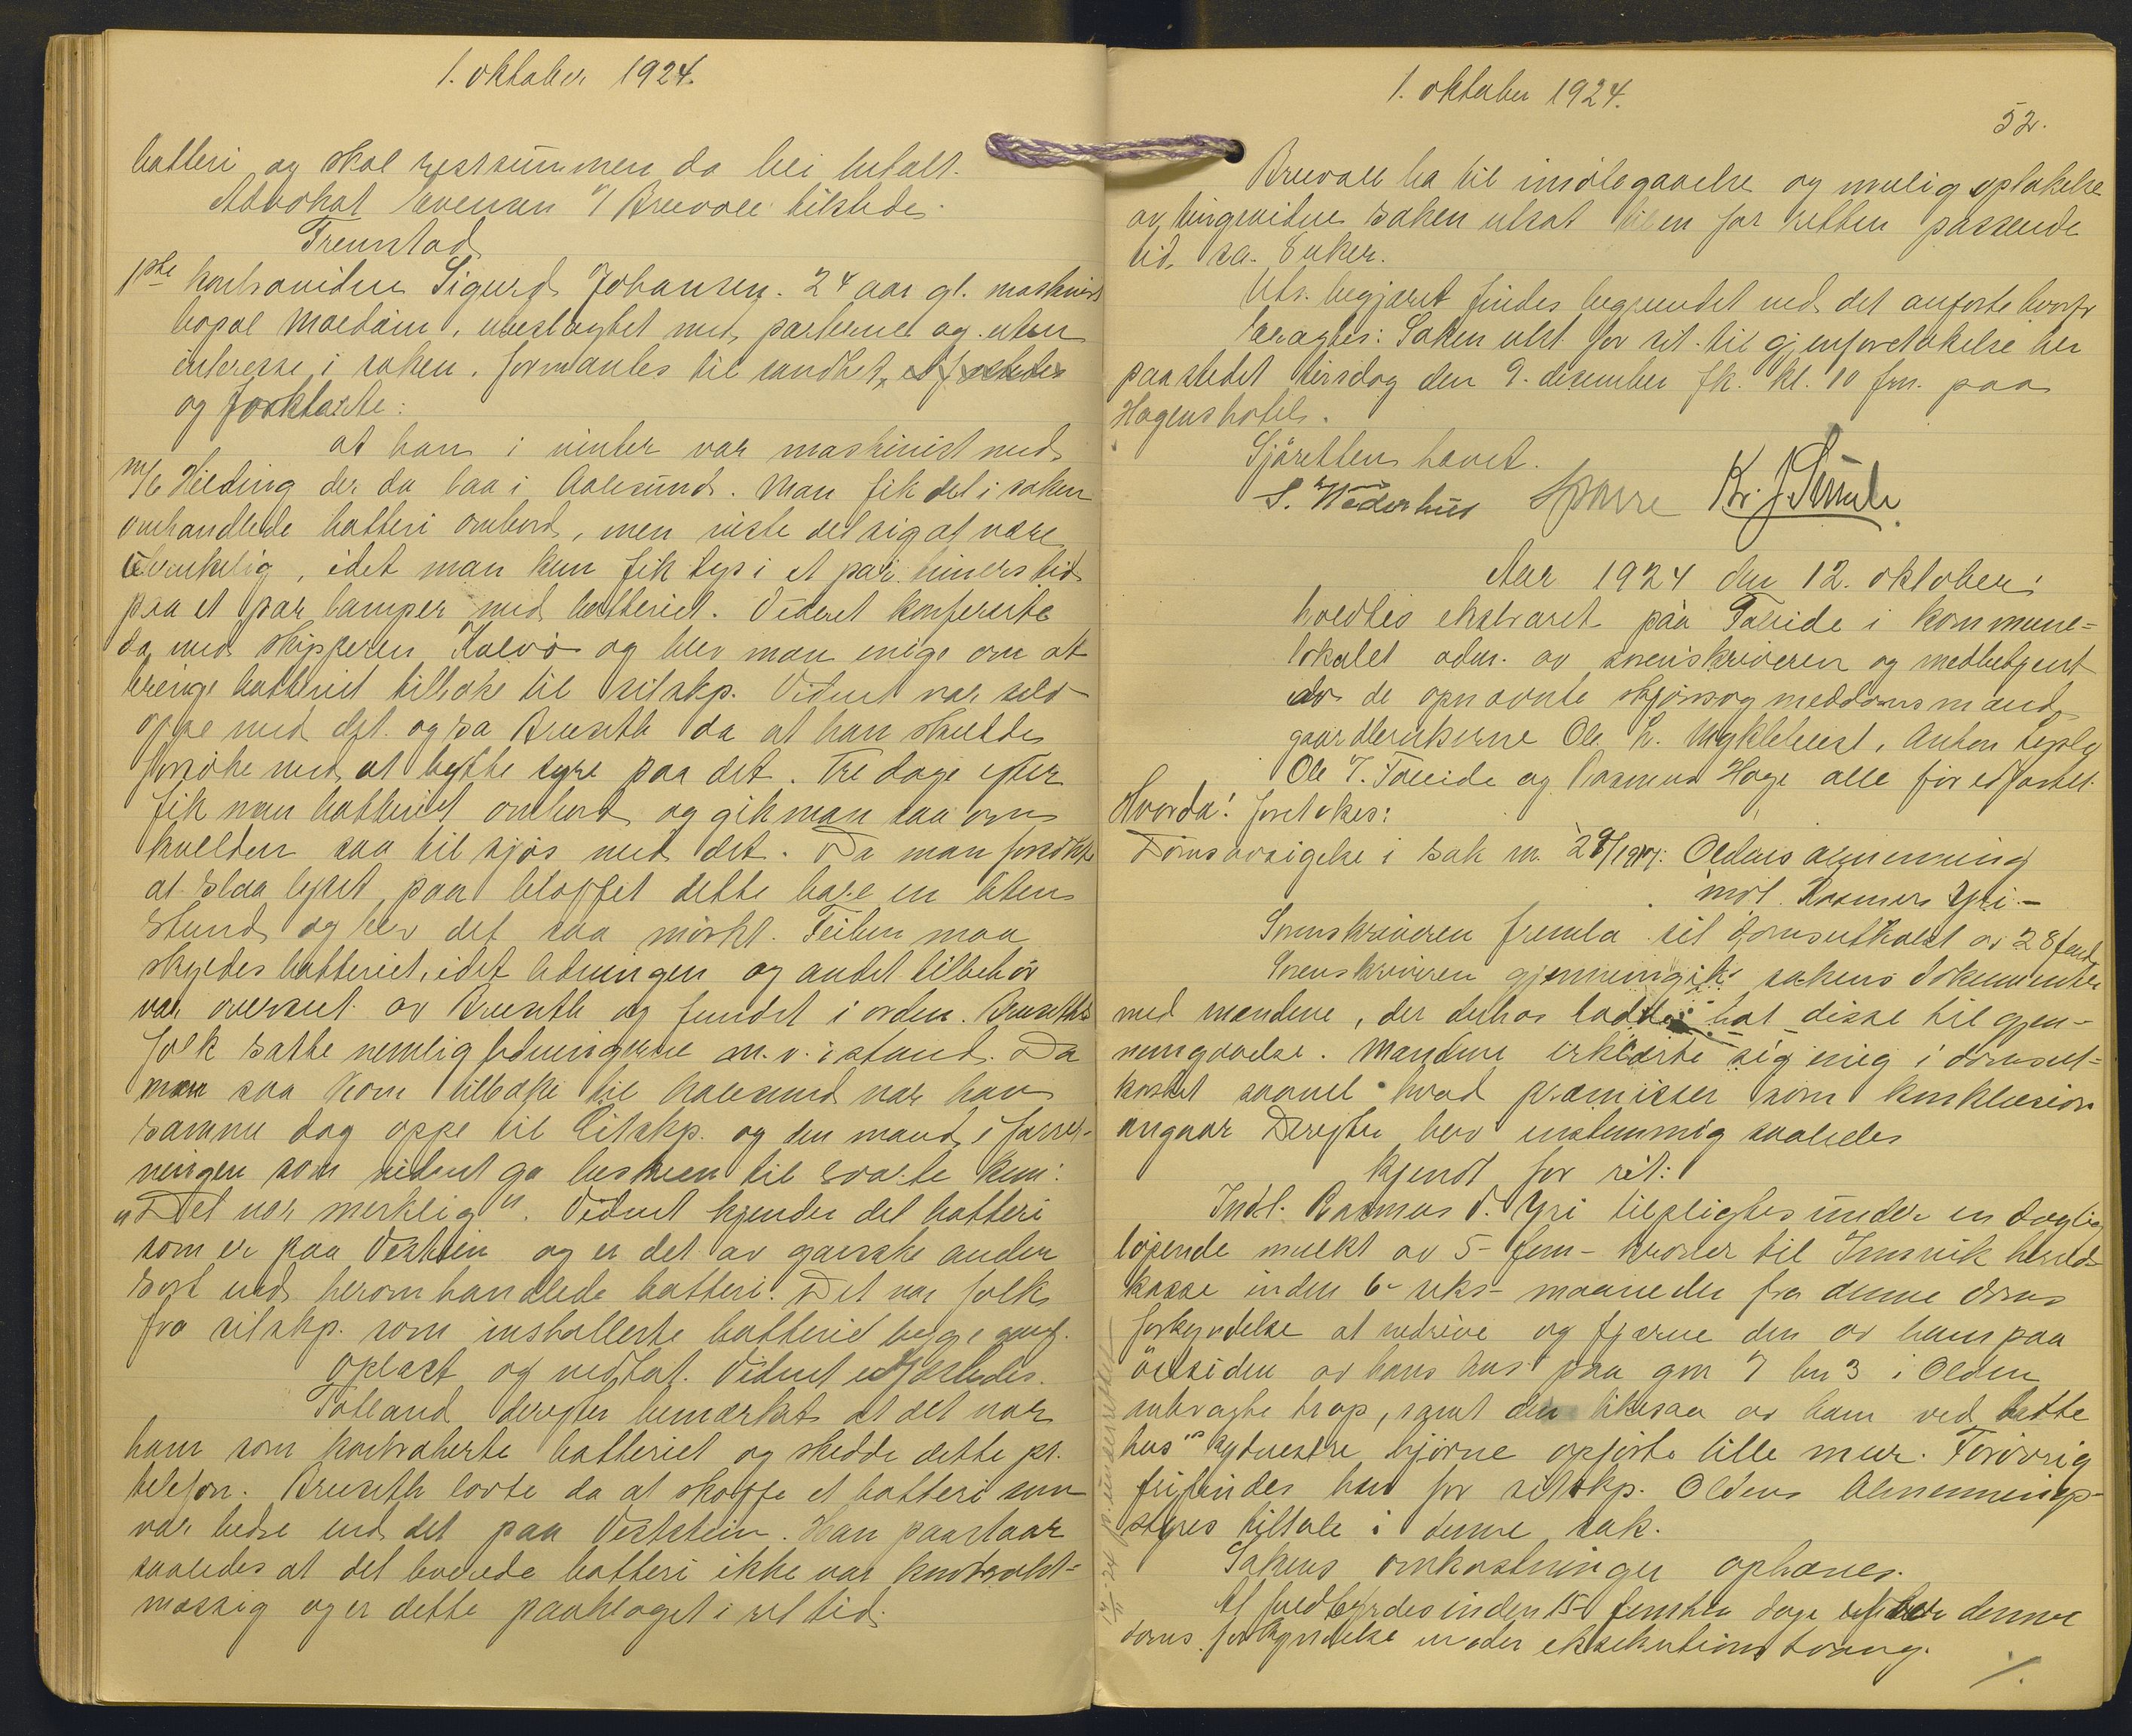 1. oktober 1924.
batteri og skal restsummen da bli betalt.
Advokat Evensen f/ Bruvoll tilstede.
Fremstod
1ste kontravidne Sigurd Johansen. 24 aar gl. maskinist
bopæl Maldøin, ubeslægtet med parterne og uten
interesse i saken. formantes til sandhet,
og forklarte:
at han i vinter var maskinist med
m/k Hilding der da laa i Aalesund. Man fik det i saken
omhandlede batteri ombord, men viste det sig at være
ubrukelig, idet man kun fik lys i et par timers tid
paa et par lamper med batteriet. Vidnet konfererte
da med skipperen Kalvø og blev man enige om at
bringe batteriet tilbake til citskp. Vidnet var selv
oppe med det. og sa Bruseth da at han skulde
forsøke med at bytte syre paa det. Tre dage efter
fik man batteriet ombord og gik man saa om
kvelden saa til sjøs med det. Da man forsøkte
at slaa lyset paa bloffet dette bare en liten
stund og blev det saa mørkt. Feilen maa
skyldes batteriet, idet ledningen og andet tilbehør
var overset av Bruseth og fundet i orden. Bruseths
folk satte nemlig ledningerne m. v. istand. Da
man saa kom tilbake til Aalesund var han
samme dag oppe til Citskp. og den mand i forret-
ningen som vidnet ga beskeen til svarte kun:
"Det var merklig". Vidnet kjender det batteri
som er paa Veststein og er det av ganske anden
sort end heromhandlede batteri. Det var folk
fra citskp. som installerte batteriet begge gang.
Oplæst og vedtat. Vidnet edfæstedes.
Tolland derefter bemerket at det var
ham som kontraherte batteriet og skedde dette pr.
telefon. Bruseth lovte da at skaffe et batteri som
var bedre end det paa Veststein. Han paastaar
saaledes at det leverede batteri ikke var kontrakt-
mæssig og er dette paaklaget i ret tid.
1. oktober 1924.
52.
Bruvoll ba til imøtegaaelse og mulig optakelse
av tingsvidne saken utsat til en for retten passende
tid. ca. 8 uker.
Uts. begjæret findes begrundet ved det anførte hvorfor
eragtes: Saken utst. for ret. til gjenforetakelse her
paa stedet tirsdag den 9. desember fk. kl. 10 fm. paa
Hagens hotel.
Sjøretten hævet.
S. Nedrehus Sparre Kr. J.
Aar 1924 den 12. oktober:
holdtes ekstraret paa Faleide i kommune-
lokalet adm. av sorenskriveren og medbetjent
av de opnævnte skjøns og meddomsmænd
gaardbrukerne Ole L. Myklebust, Anton
Ole T. Faleide og Rasmus Hage alle før edfæstet.
Hvorda: foretokes:
Domsavsigelse i sak nr. Oldens almenning
mot Rasmus Yri.-
Sorenskriveren fremla sit domsutkast av 28
Sorenskriveren gjennemgik sakens dokumenter
med mændene, der derhos hadde hat disse til gjen-
nemgaaelse. Mændene erklærte sig enig i domsut-
kastet saavel hvad præmisser som konklusion
angaar Derefter blev enstemmig saaledes
kjendt for ret:
Indst. Rasmus D. Yri tilpligtes under en daglig
løpende mulkt av 5- fem- kroner til Innvik herreds-
kasse inden 6- seks- maaneder fra denne doms
forkyndelse at nedrive og fjerne den av ham paa
østsiden av hans hus paa gnr 7 bn 3 i Olden
anbragte trap, samt den likesaa av ham ved dette
hus" sydvestre hjørne opførte lille mur. Forøvrig
frifindes han for citskp. Oldens Almennings-
styres tiltale i denne sak.
Sakens omkostninger ophæves.
At fuldbyrdes inden 15- femten dage efter denne
doms forkyndelse under eksekutions tvang.
./.